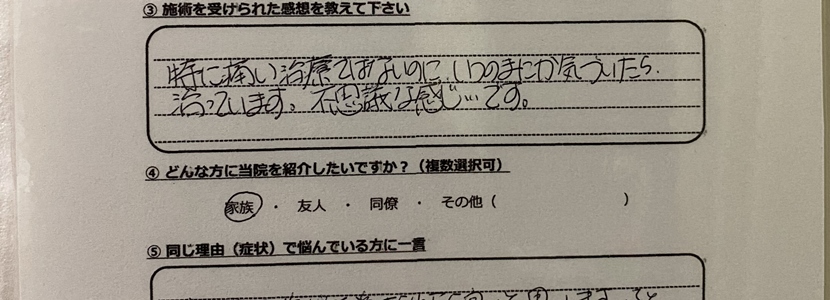 ③ 施術を受けられた感想を教えて下さい
特に痛い治療ではないのに、いつのまにか気づいたら、
治っています。不思議な感じ…です。
④ どんな方に当院を紹介したいですか？（複数選択可）
家族 ・ 友人 ・ 同僚 ・ その他（ ）
⑤ 同じ理由（症状）で悩んでいる方に一言